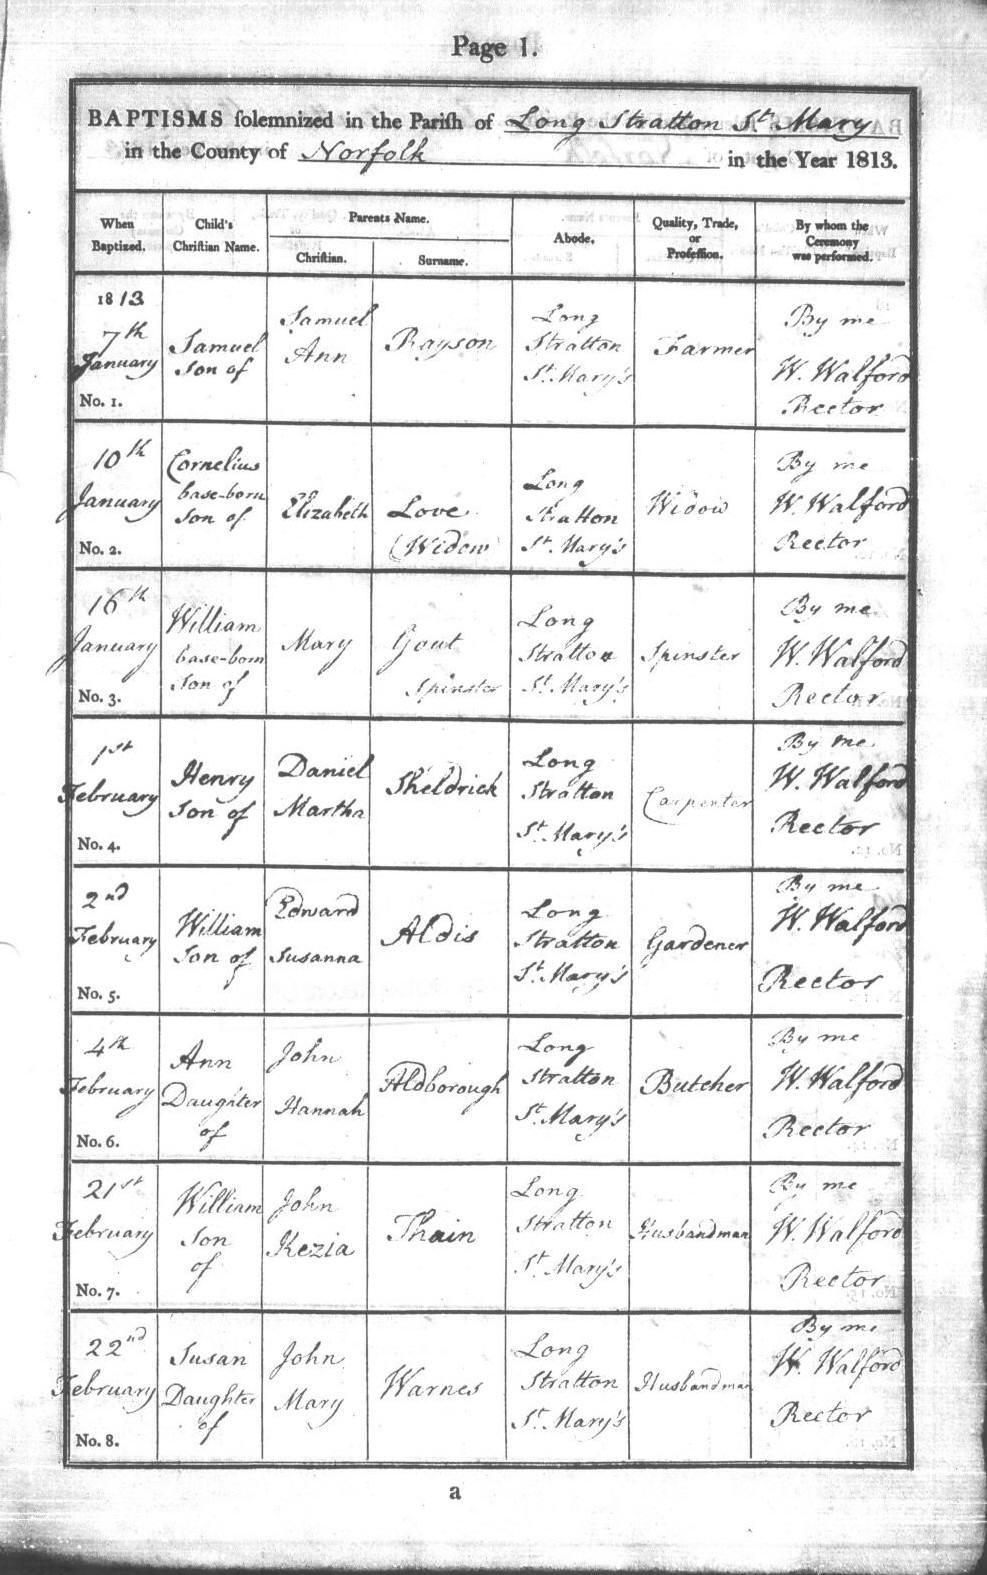 Page 1.
BAPTISMS solemnized in the Parish of Long Stratton St. Mary
in the County of Norfolk in the Year 1813.
When
Baptized.
Child's
Christian Name.
Parents Name.
Christian.
Surname.
Abode.
Quality, Trade,
or
Profession.
By whom the
Ceremony
was performed.
1813
7th
January
No. 1.
Samuel
Son of
Samuel
Ann
Rayson
Long
Stratton
St. Mary's
Farmer
By me
W. Walford
Rector
10th
January
No. 2.
Cornelius
base-born
Son of
Elizabeth
Love
(Widow)
Long
Stratton
St. Mary's
Widow
By me
W. Walford
Rector
16th
January
No. 3.
William
base-born
Son of
Mary
Gout
Spinster
Long
Stratton
St. Mary's
Spinster
By me
W. Walford
Rector
1st
February
No. 4.
Henry
Son of
Daniel
Martha
Sheldrick
Long
Stratton
St. Mary's
Carpenter
By me
W. Walford
Rector
2nd
February
No. 5.
William
Son of
Edward
Susanna
Aldis
Long
Stratton
St. Mary's
Gardener
By me
W. Walford
Rector
4th
February
No. 6.
Ann
Daughter
of
John
Hannah
Aldborough
Long
Stratton
St. Mary's
Butcher
By me
W. Walford
Rector
21st
February
No. 7.
William
Son
of
John
Kezia
Thain
Long
Stratton
St. Mary's
Husbandman
By me
W. Walford
Rector
22nd
February
No. 8.
Susan
Daughter
of
John
Mary
Warnes
Long
Stratton
St. Mary's
Husbandman
By me
W. Walford
Rector
a